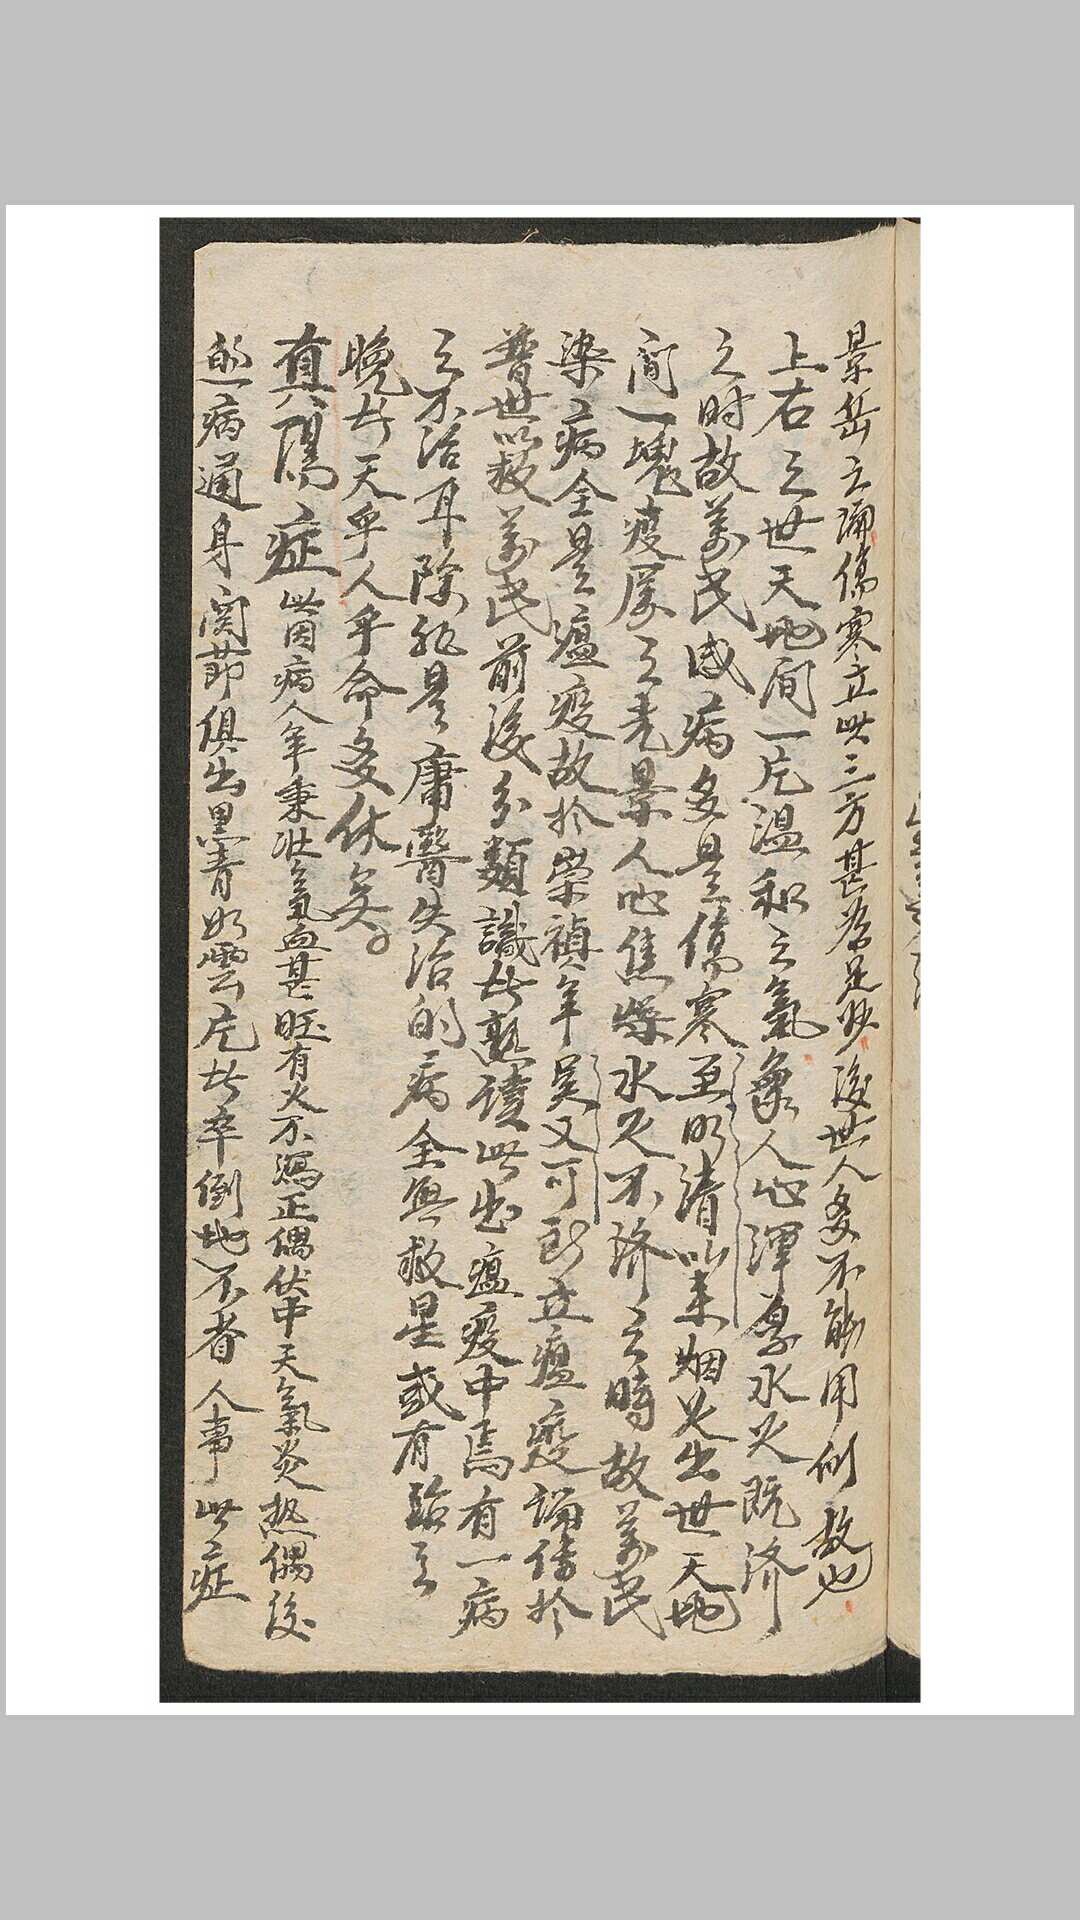 景岳之論傷寒立此三方甚為足妙後世人多不能用例故也
上右之世天地間一片温和之氣象人心渾厚水火既济
之时故萬民感病多是傷寒至明清以来烟火出世天地
间一塊疫厲之 景人心焦燥水火不濟之時故萬民
染病全是瘟疫故於崇禎年吴又可 立瘟疫論传於
普世以救萬民前後分類識者熟读此出瘟疫中焉有一病
之不治耳除非是庸醫失治的病全無救星或有 之
晚者天乎人乎命多休矣
真陽症此因病人年秉壯氣血甚旺有火不瀉正偶伏中天氣炎热偶後
病通身関節俱出黑青如雲片者卒倒地不省人事此症